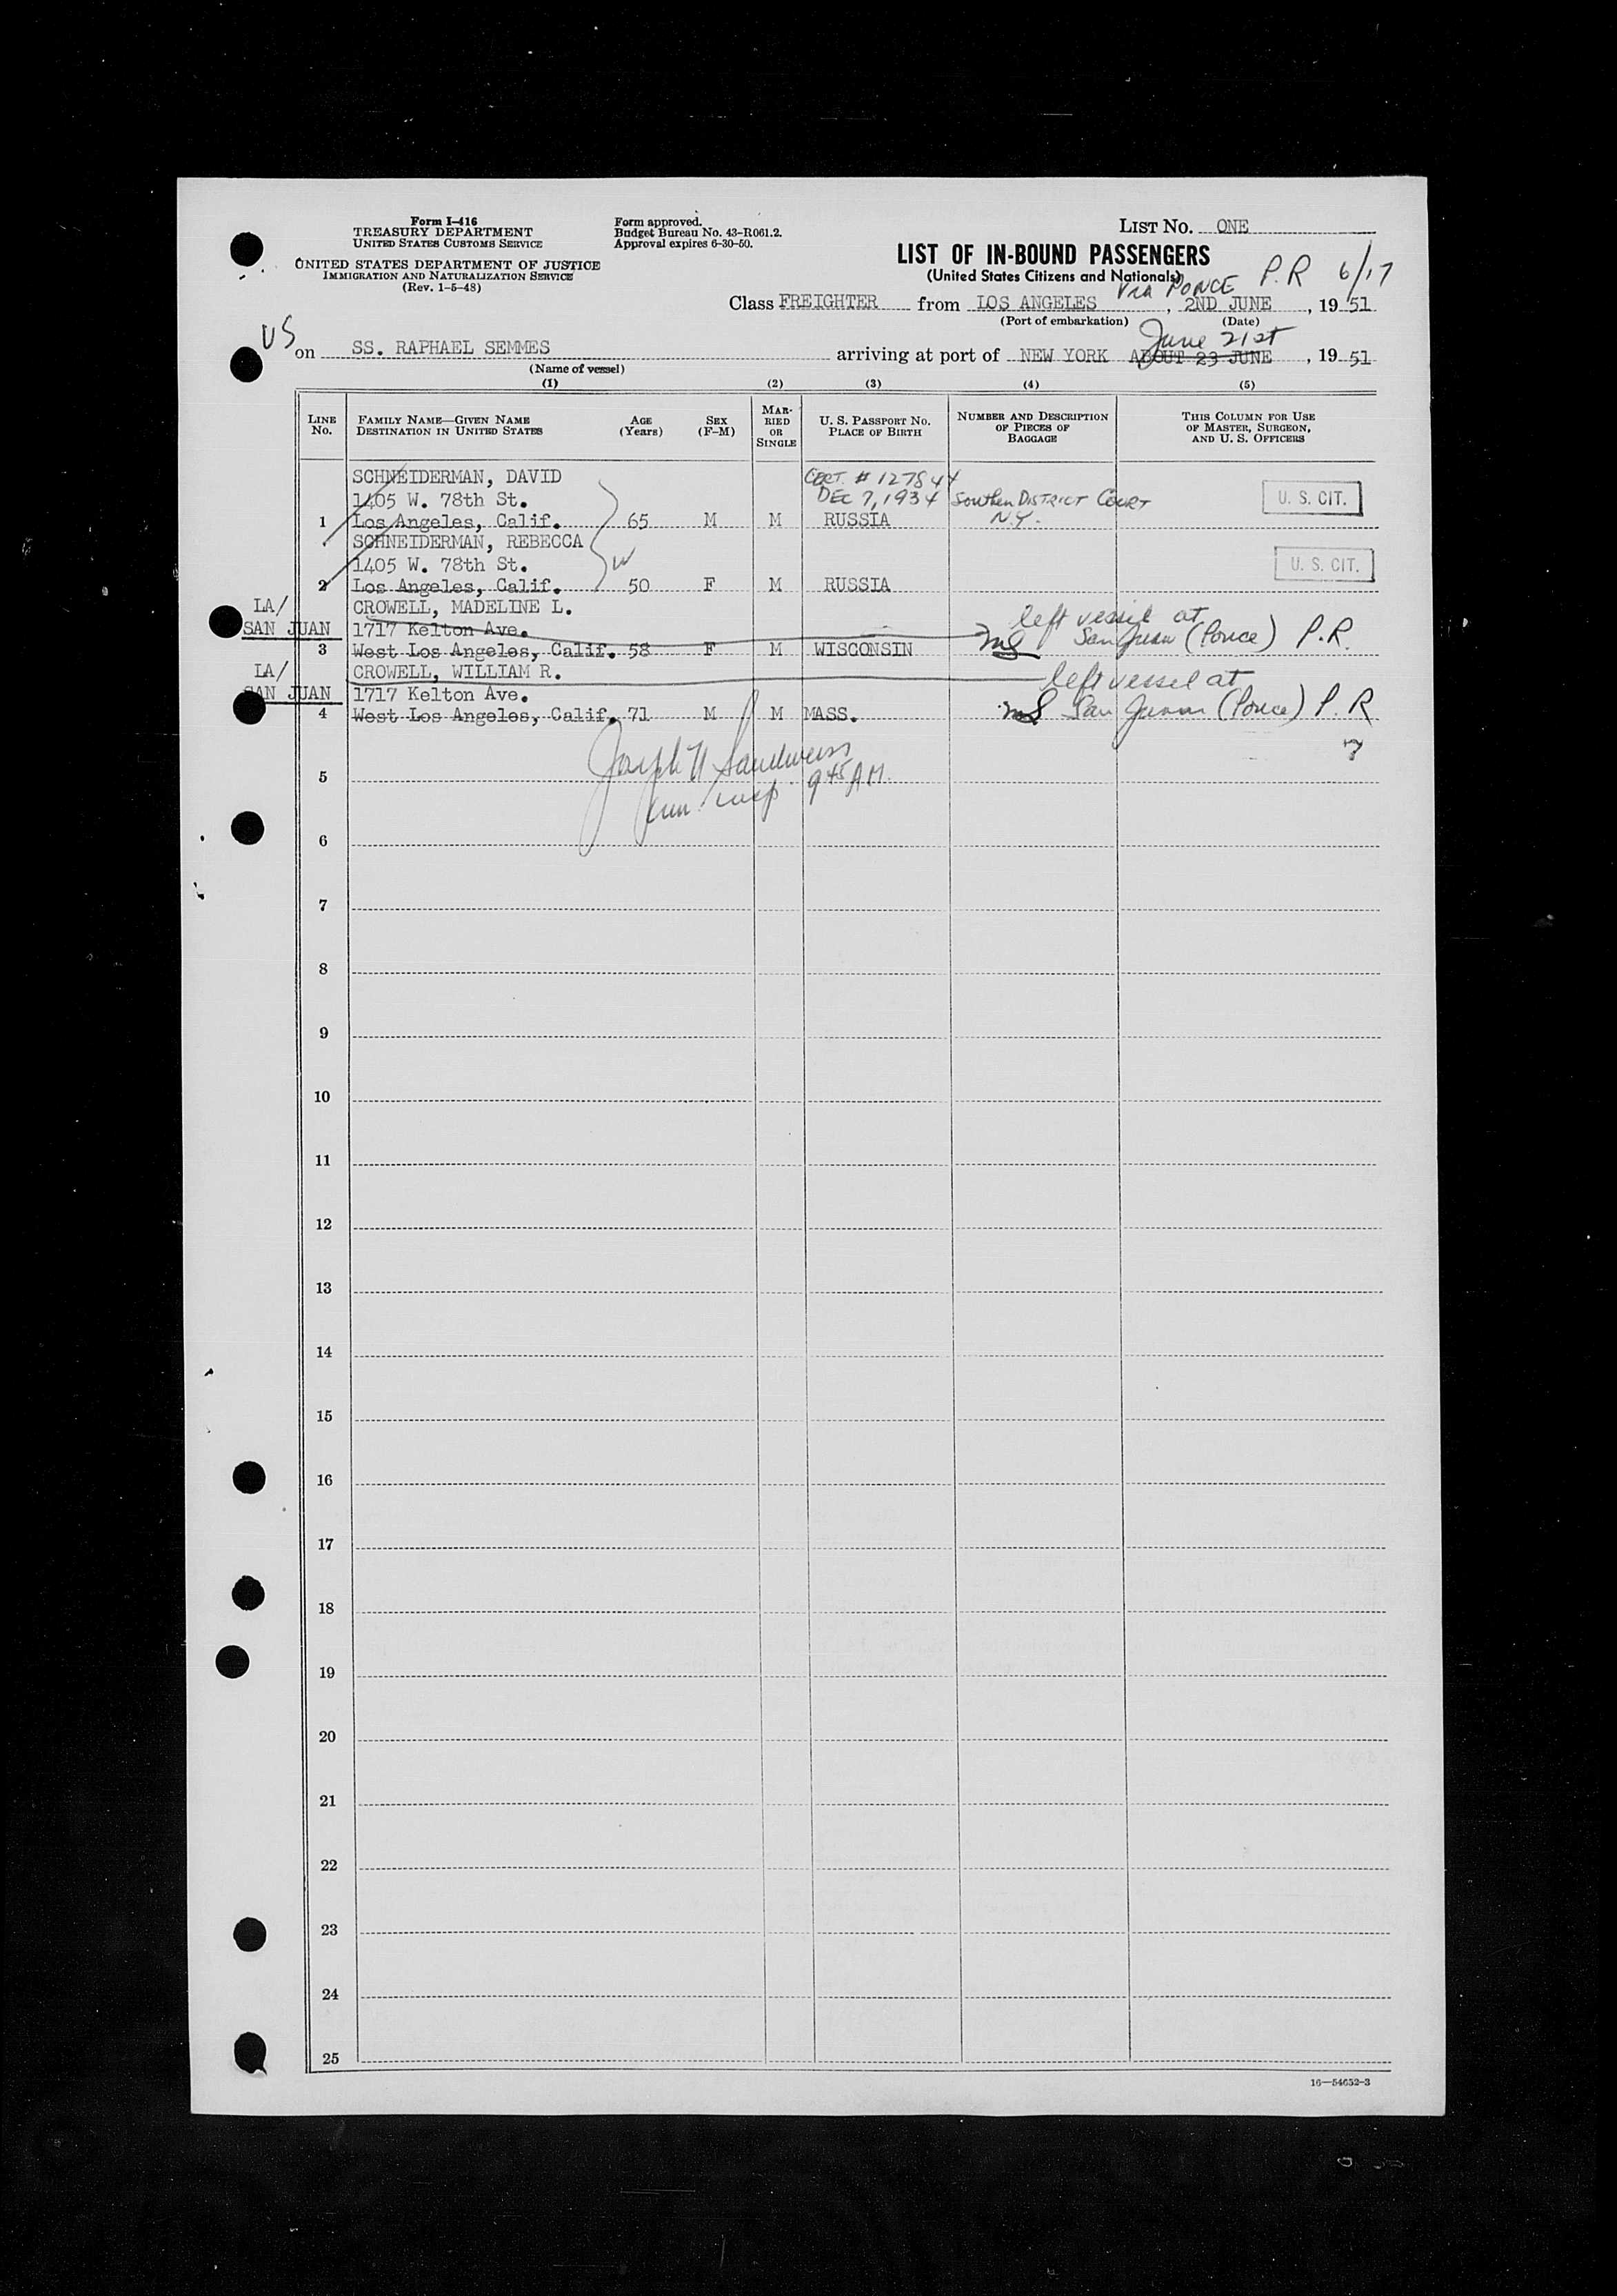 Form I-416
TREASURY DEPARTMENT
UNITED STATES CUSTOMS SERVICE
UNITED STATES DEPARTMENT OF JUSTICE
IMMIGRATION AND NATURALIZATION SERVICE
(Rev. 1-5-48)
Form approved.
Budget Bureau No. 43-R061.2.
Approval expires 6-30-50.
LIST No. ONE
LIST OF IN-BOUND PASSENGERS
(United States Citizens and Nationals)
VIA PONCE P.R 6/17
Class FREIGHTER from LOS ANGELES, 2ND JUNE, 19 51
(Port of embarkation) (Date)
US
June 21st
on SS. RAPHAEL SEMMES arriving at port of NEW YORK ABOUT 23 JUNE, 19 51
(Name of vessel)
(1) (2) (3) (4) (5)
LINE No.
FAMILY NAME—GIVEN NAME
DESTINATION IN UNITED STATES
AGE (Years)
SEX (F-M)
MARRIED OR SINGLE
U. S. PASSPORT NO.
PLACE OF BIRTH
NUMBER AND DESCRIPTION OF PIECES OF BAGGAGE
THIS COLUMN FOR USE OF MASTER, SURGEON, AND U. S. OFFICERS
SCHNEIDERMAN, DAVID CERT. # 127844
1405 W. 78th St. DEC 7, 1934 Southern DISTRICT COURT U. S. CIT.
1 Los Angeles, Calif. 65 M M RUSSIA N.Y.
SCHNEIDERMAN, REBECCA
1405 W. 78th St. W U. S. CIT.
2 Los Angeles, Calif. 50 F M RUSSIA
LA/ CROWELL, MADELINE L. left vessel at
SAN JUAN 1717 Kelton Ave. San Juan (Ponce) P.R.
3 West Los Angeles, Calif. 58 F M WISCONSIN
LA/ CROWELL, WILLIAM R. left vessel at
SAN JUAN 1717 Kelton Ave. San Juan (Ponce) P.R
4 West Los Angeles, Calif. 71 M M MASS.
Joseph
5 Imm. Insp. 9 45 AM.
6
7
8
9
10
11
12
13
14
15
16
17
18
19
20
21
22
23
24
25
16—54652-3